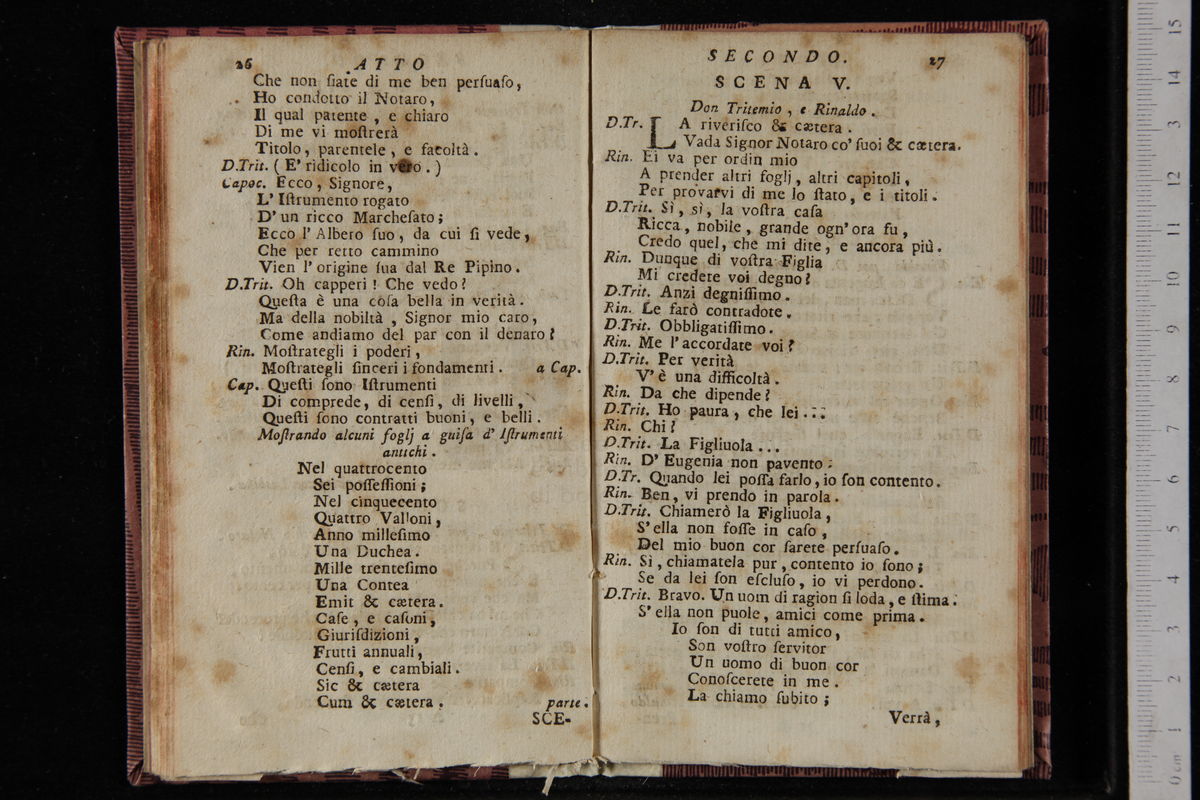 26 ATTO
Che non ſiate di me ben perſuaſo,
Ho condotto il Notaro,
Il qual patente , e chiaro
Di me vi moſtrerà
Titolo, parentele , e facoltà .
D.Trit. ( E' ridicolo in vero . )
Capoc. Ecco , Signore,
L' Iſtrumento rogato
D' un ricco Marcheſato ;
Ecco l' Albero ſuo, da cui ſi vede,
Che per retto cammino
Vien l' origine ſua dal Re Pipino .
D.Trit. Oh capperi ! Che vedo ?
Queſta è una coſa bella in verità .
Ma della nobiltà , Signor mio caro,
Come andiamo del par con il denaro ?
Rin. Moſtrategli i poderi,
Moſtrategli ſinceri i fondamenti . a Cap.
Cap. Queſti ſono Iſtrumenti
Di comprede, di cenſi, di livelli,
Queſti ſono contratti buoni, e belli .
Moſtrando alcuni foglj a guiſa d' Iſtrumenti
antichi .
Nel quattrocento
Sei poſſeſſioni ;
Nel cinquecento
Quattro Valloni,
Anno milleſimo
Una Duchea .
Mille trenteſimo
Una Contea
Emit & cætera .
Caſe , e caſoni,
Giuriſdizioni,
Frutti annuali,
Cenſi, e cambiali .
Sic & cætera
Cum & cætera . parte .
SCE-
SECONDO. 27
SCENA V.
Don Tritemio , e Rinaldo .
D.Tr. LA riveriſco & cætera .
Vada Signor Notaro co' ſuoi & cætera.
Rin. Ei va per ordin mio
A prender altri foglj, altri capitoli,
Per provarvi di me lo ſtato, e i titoli .
D.Trit. Sì, sì, la voſtra caſa
Ricca, nobile, grande ogn' ora fu,
Credo quel, che mi dite, e ancora più.
Rin. Dunque di voſtra Figlia
Mi credete voi degno ?
D.Trit. Anzi degniſſimo .
Rin. Le farò contradote .
D.Trit. Obbligatiſſimo .
Rin. Me l' accordate voi ?
D.Trit. Per verità
V' è una difficoltà .
Rin. Da che dipende ?
D.Trit. Ho paura , che lei ...
Rin. Chi ?
D.Trit. La Figliuola ...
Rin. D' Eugenia non pavento .
D.Tr. Quando lei poſſa farlo, io ſon contento .
Rin. Ben, vi prendo in parola .
D.Trit. Chiamerò la Figliuola,
S' ella non foſſe in caſo,
Del mio buon cor ſarete perſuaſo .
Rin. Sì , chiamatela pur , contento io ſono ;
Se da lei ſon eſcluſo, io vi perdono .
D.Trit. Bravo. Un uom di ragion ſi loda, e ſtima .
S' ella non puole, amici come prima .
Io ſon di tutti amico,
Son voſtro ſervitor
Un uomo di buon cor
Conoſcerete in me .
La chiamo ſubito ;
Verrà,
15
14
13
12
11
10
9
8
7
6
5
4
3
2
1
0 cm